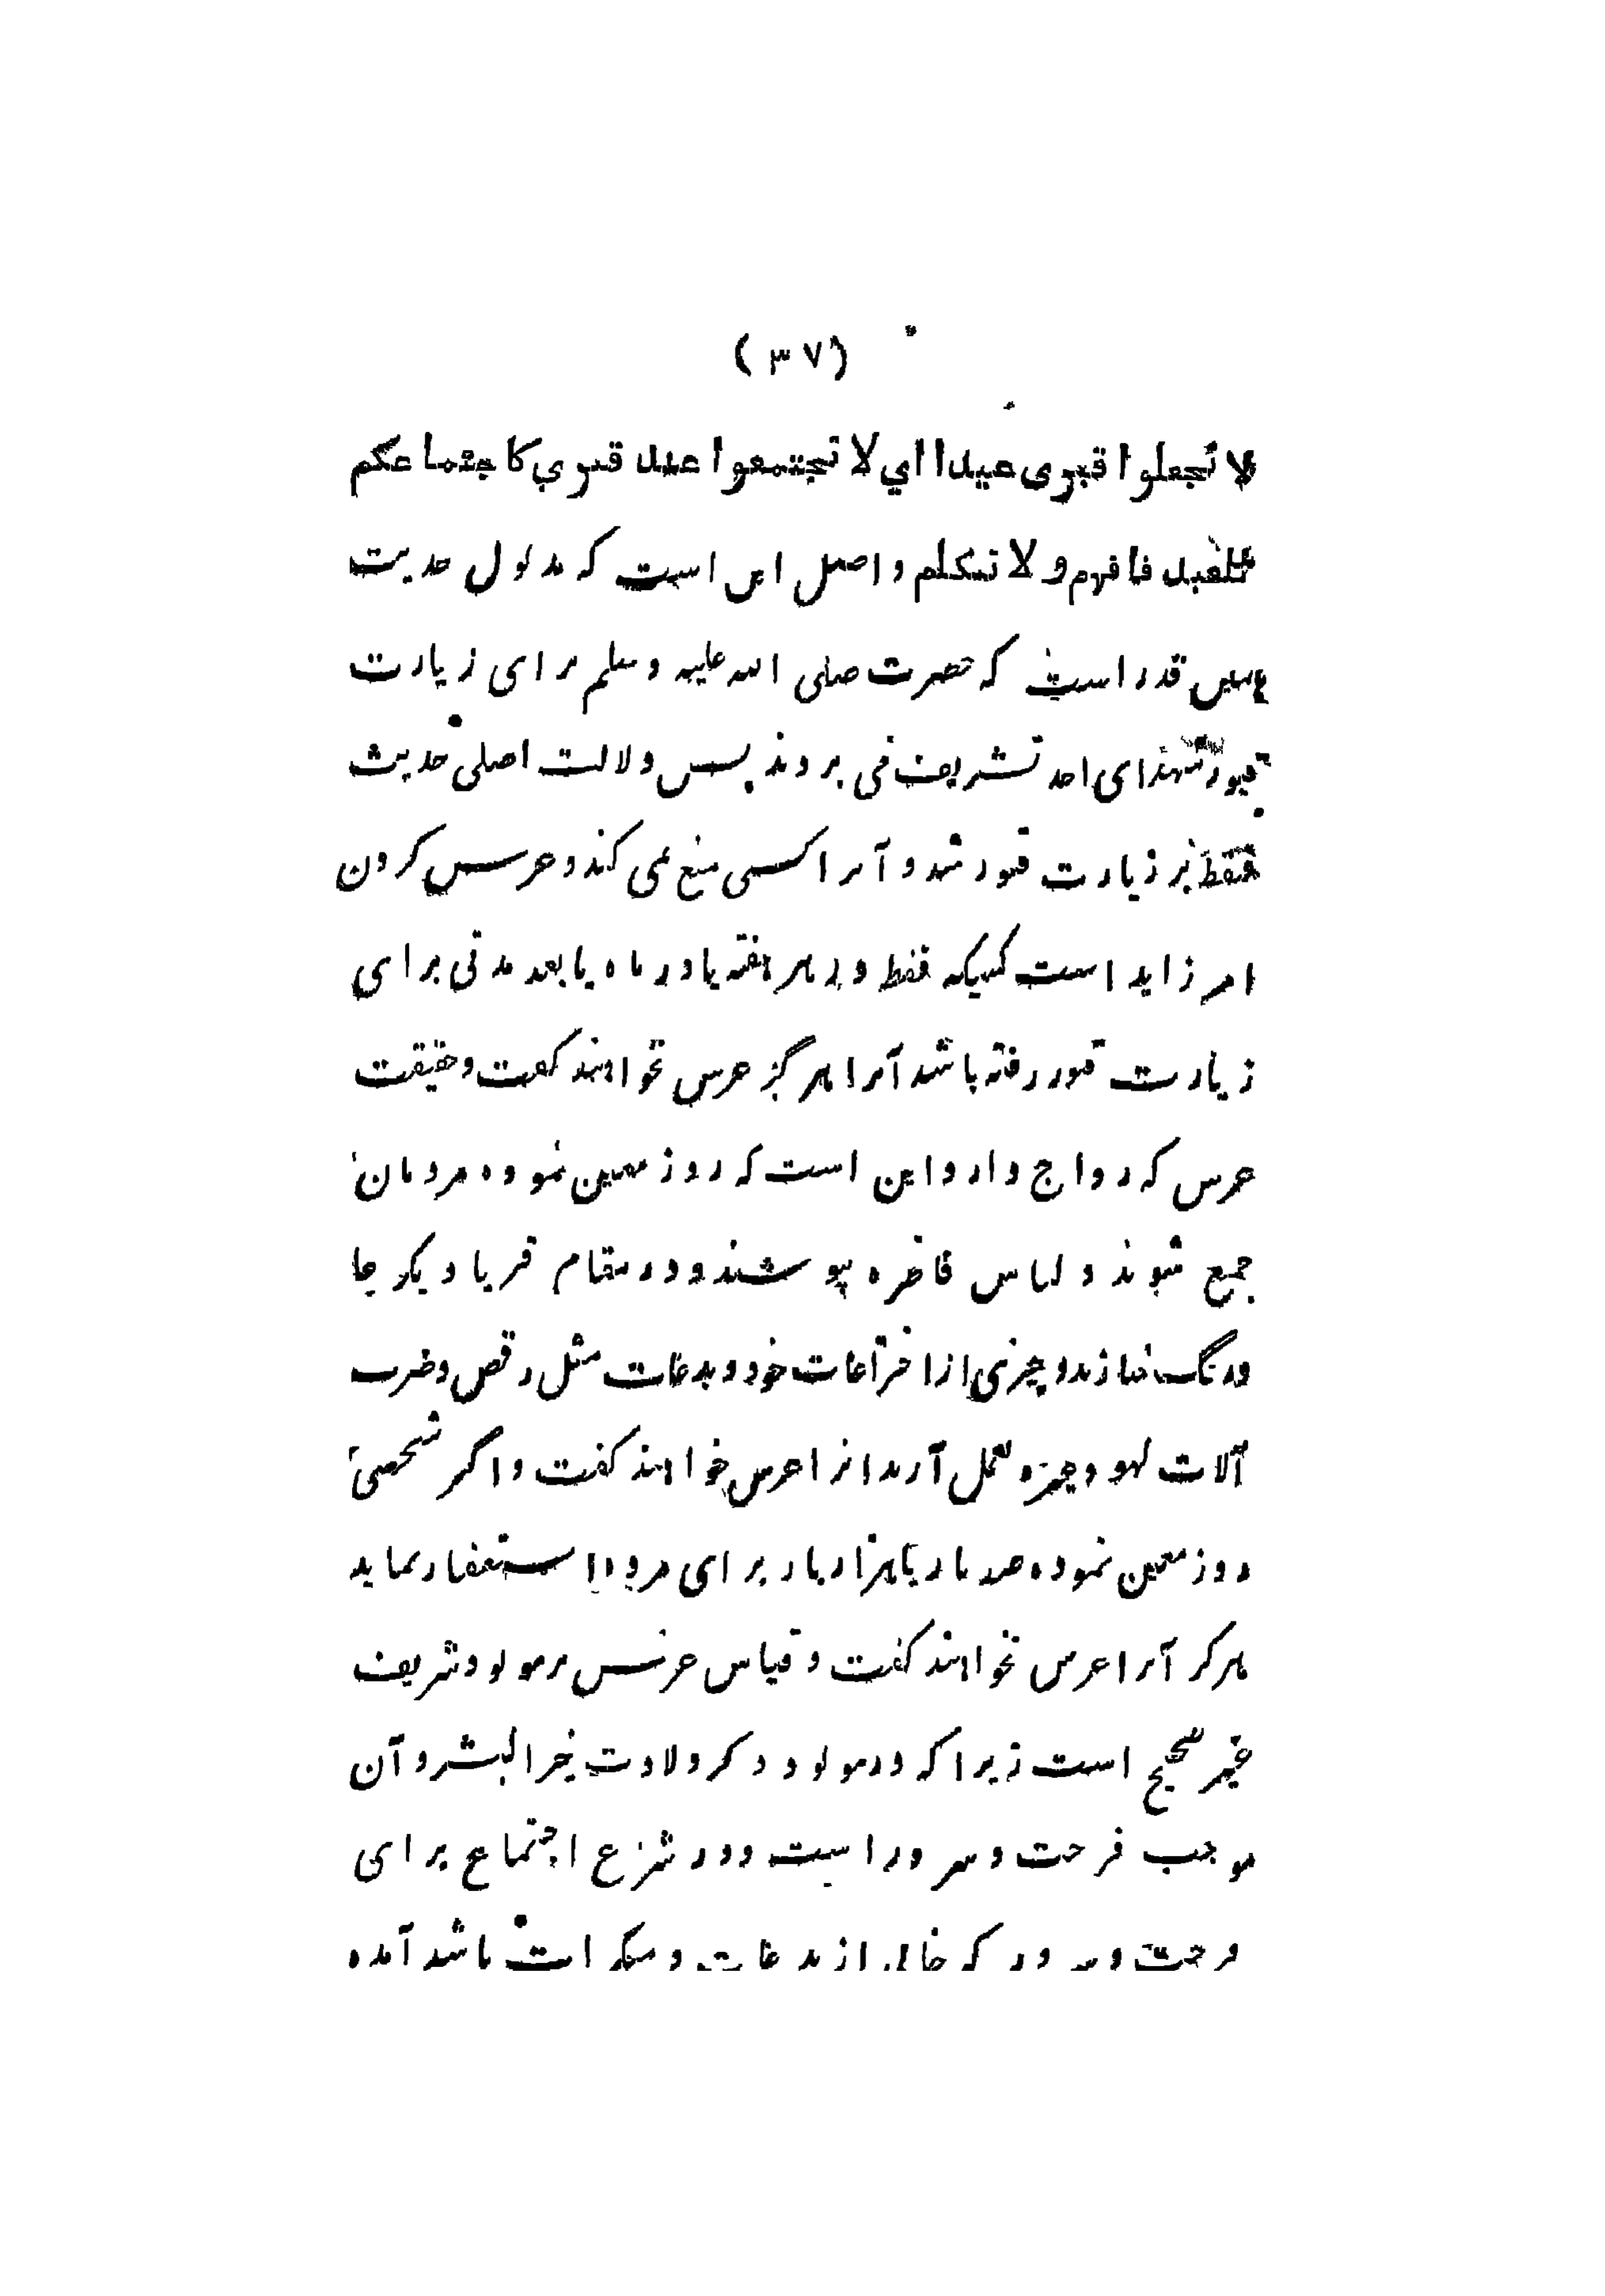 (۳۷)
لا تجعلوا قبری عیدا ای لا تجتمعوا عند قبری کاجتماعکم
للعید فافهم و لا تتکلم و اصل این است که مدلول حدیث
همین قدر است که حضرت صلی الله علیه و سلم برای زیارت
قبور شهدای احد تشریف می بردند پس دلالت اصلی حدیث
فقط بر زیارت قبور شد و آنرا کسی منع نمی کند و عرس کردن
امر زاید است کسیکه فقط در هر هفته یا در ماه یا بعد مدتی برای
زیارت قبور رفته باشد آنرا هرگز عرس نخواهند گفت و حقیقت
عرس که رواج دارد این است که روز معین نموده مردمان
جمع شوند و لباس فاخره پوشند و در مقام قبر یا دیگر جا
درنگ سازند و چیزی از اختراعات خود و بدعات مثل رقص و ضرب
آلات لهو و غیره بعمل آرند آنرا عرس خواهند گفت و اگر شخصی
روز معین نموده صد بار یا هزار بار برای مرده استغفار نماید
هرگز آنرا عرس نخواهند گفت و قیاس عرس بر مولود شریف
غیر صحیح است زیرا که در مولود ذکر ولادت خیر البشر و آن
موجب فرحت و سرور است و در شرع اجتماع برای
فرحت و سرور که خالی از بدعات و منکرات باشد آمده